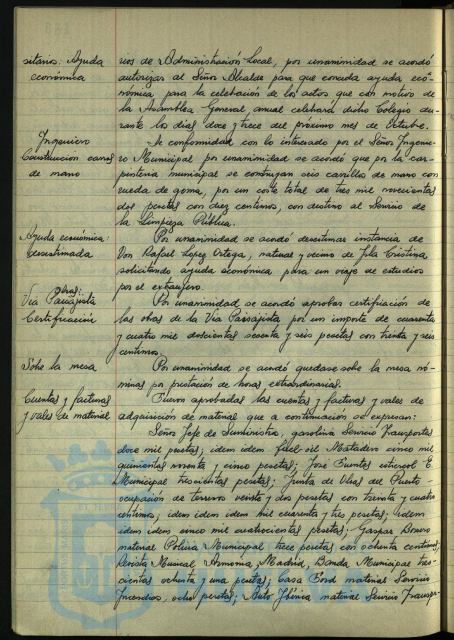 sitarios: Ayuda
económica
rios de Administración Local, por unanimidad se acordó
autorizar al Señor Alcalde para que conceda ayuda eco-
nómica para la celebración de los actos que con motivo de
la Asamblea General anual celebrará dicho Colegio du-
rante los días doce y trece del próximo mes de Octubre.
Ingeniero
Construccion carros
de mano
De conformidad con lo interesado por el Señor Ingenie-
ro Municipal por unanimidad se acordó que por la car-
pinteria municipal se construyan seis carrillos de mano con
rueda de goma, por un coste total de tres mil novecientas
dos pesetas con diez centimos, con destino al Servicio de
la Limpieza Pública.
Ayuda económica:
desestimada
Por unanimidad se acordó desestimar instancia de
Don Rafael Lopez Ortega, natural y vecino de Isla Cristina,
solicitando ayuda económica para un viaje de estudios
por el extranjero.
obras:
Via Paisajista
Certificación
Por unanimidad se acordó aprobar certificación de
las obras de la Via Paisajista por un importe de cuarenta
y cuatro mil doscientas sesenta y seis pesetas con treinta y seis
centimos.
Sobre la mesa
Por unanimidad se acordó quedase sobre la mesa nó-
minas por prestación de horas extraordinarias.
Cuentas y facturas
y vales de material
Fueron aprobadas las cuentas y facturas y vales de
adquisición de material que a continuación se expresan:
Señor Jefe de Suministro, gasolina Servicio Transportes
doce mil pesetas; idem idem fuel-oil Matadero cinco mil
quinientas noventa y cinco pesetas; José Puentes estiercol E.
Municipal trescientas pesetas; Junta de Obras del Puerto
ocupación de terrenos veinte y dos pesetas con treinta y cuatro
centimos; idem idem idem mil cuarenta y tres pesetas; idem
idem idem cinco mil cuatrocientas pesetas; Gaspar Bravo
material Policia Municipal trece pesetas con ochenta centimos;
Revista Musical, Armonia, Madrid, Banda Municipal tres-
cientas ochenta y una pesetas; Casa Ford material Servicio
Incendios, ocho pesetas; Auto Ibérica material Servicio Transpor-